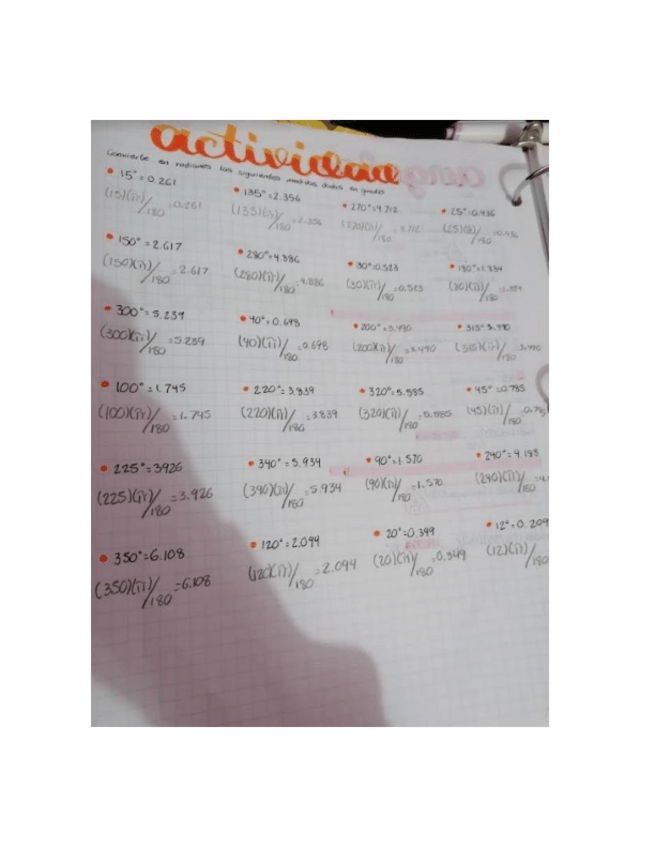 actividad
Convierte en radianes las siguientes medidas dadas en grados
15° = 0.261
(15)(π)/180 = 0.261
135° = 2.356
(135)(π)/180 = 2.356
270° = 4.712
(270)(π)/180 = 4.712
25° = 0.436
(25)(π)/180 = 0.436
150° = 2.617
(150)(π)/180 = 2.617
280° = 4.886
(280)(π)/180 = 4.886
30° = 0.523
(30)(π)/180 = 0.523
300° = 5.239
(300)(π)/180 = 5.239
40° = 0.698
(40)(π)/180 = 0.698
200° = 3.490
(200)(π)/180 = 3.490
315°
(315)(π)/180
100° = 1.745
(100)(π)/180 = 1.745
220° = 3.839
(220)(π)/180 = 3.839
320° = 5.585
(320)(π)/180 = 5.585
45° = 0.785
(45)(π)/180 = 0.78
225° = 3926
(225)(π)/180 = 3.926
340° = 5.934
(340)(π)/180 = 5.934
90° = 1.570
(90)(π)/180 = 1.570
240° = 4.188
(240)(π)/180 = 4.
350° = 6.108
(350)(π)/180 = 6.108
120° = 2.094
(120)(π)/180 = 2.094
20° = 0.349
(20)(π)/180 = 0.349
12° = 0.209
(12)(π)/180